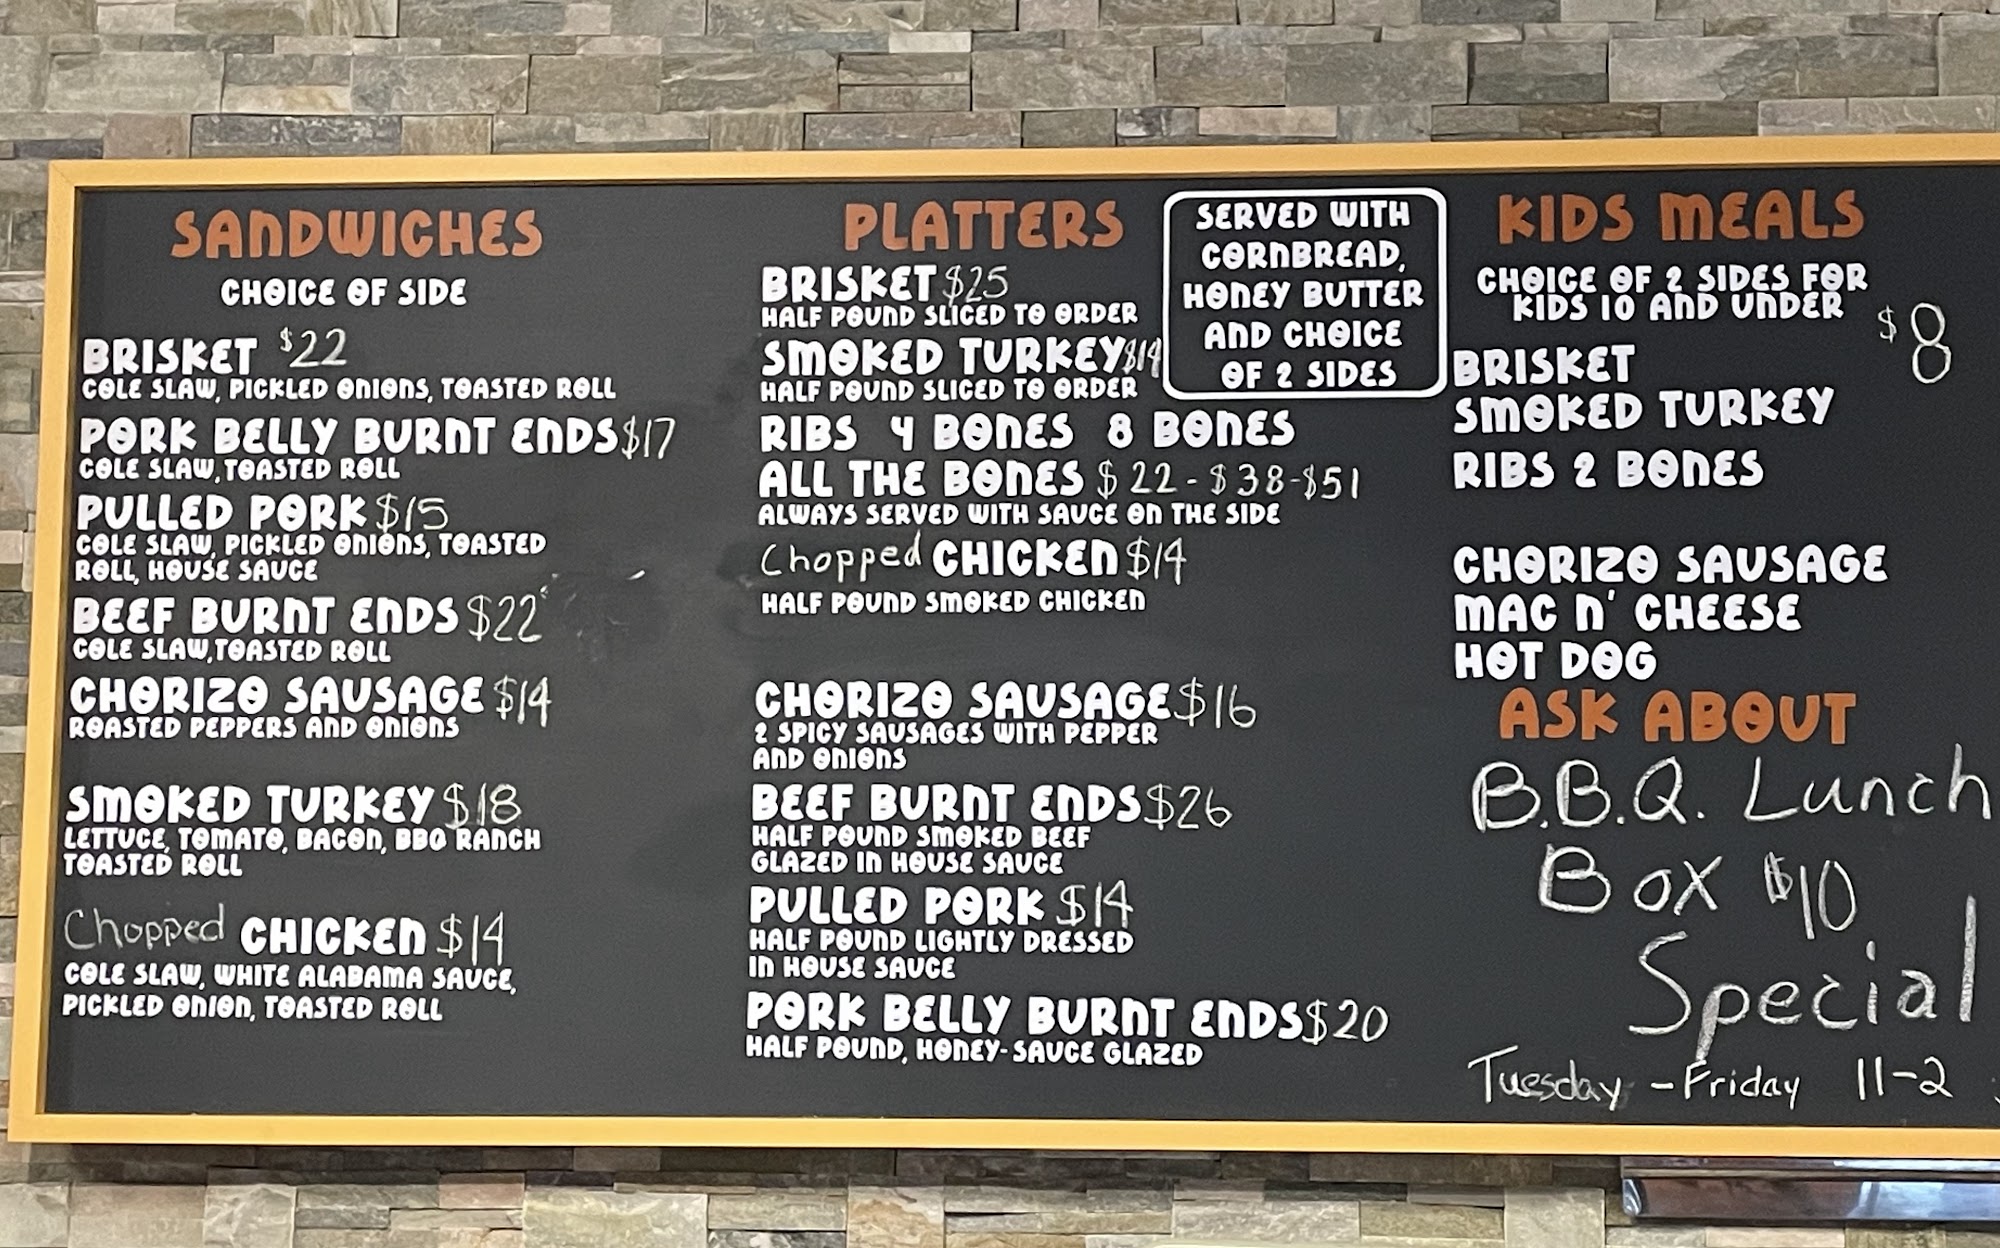 SANDWICHES
CHOICE OF SIDE
BRISKET $22
COLE SLAW, PICKLED ONIONS, TOASTED ROLL
PORK BELLY BURNT ENDS $17
COLE SLAW, TOASTED ROLL
PULLED PORK $15
COLE SLAW, PICKLED ONIONS, TOASTED
ROLL, HOUSE SAUCE
BEEF BURNT ENDS $22
COLE SLAW, TOASTED ROLL
CHORIZO SAUSAGE $14
ROASTED PEPPERS AND ONIONS
SMOKED TURKEY $18
LETTUCE, TOMATO, BACON, BBQ RANCH
TOASTED ROLL
Chopped CHICKEN $14
COLE SLAW, WHITE ALABAMA SAUCE,
PICKLED ONION, TOASTED ROLL
PLATTERS
SERVED WITH
CORNBREAD,
HONEY BUTTER
AND CHOICE
OF 2 SIDES
BRISKET $25
HALF POUND SLICED TO ORDER
SMOKED TURKEY $19
HALF POUND SLICED TO ORDER
RIBS 4 BONES 8 BONES
ALL THE BONES $22-$38-$51
ALWAYS SERVED WITH SAUCE ON THE SIDE
Chopped CHICKEN $14
HALF POUND SMOKED CHICKEN
CHORIZO SAUSAGE $16
2 SPICY SAUSAGES WITH PEPPER
AND ONIONS
BEEF BURNT ENDS $26
HALF POUND SMOKED BEEF
GLAZED IN HOUSE SAUCE
PULLED PORK $14
HALF POUND LIGHTLY DRESSED
IN HOUSE SAUCE
PORK BELLY BURNT ENDS $20
HALF POUND, HONEY-SAUCE GLAZED
KIDS MEALS
CHOICE OF 2 SIDES FOR
KIDS 10 AND UNDER
$8
BRISKET
SMOKED TURKEY
RIBS 2 BONES
CHORIZO SAUSAGE
MAC N' CHEESE
HOT DOG
ASK ABOUT
B.B.Q. Lunch
Box $10
Special
Tuesday - Friday 11-2